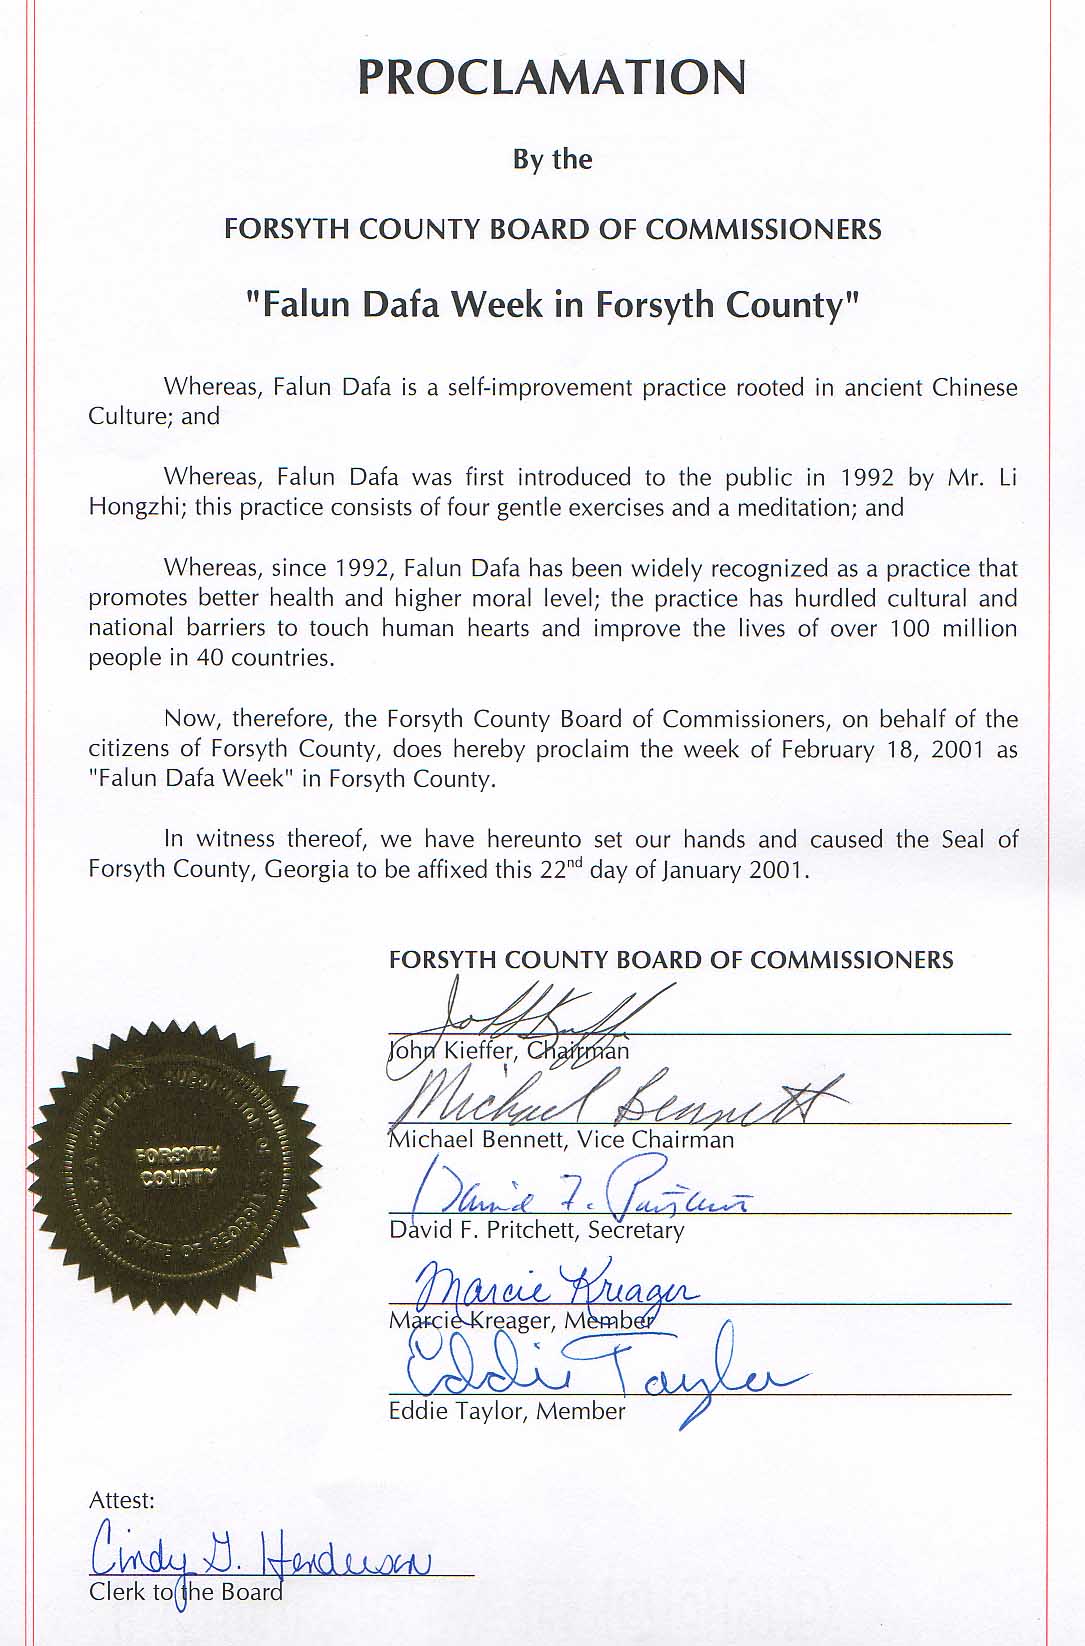 PROCLAMATION
By the
FORSYTH COUNTY BOARD OF COMMISSIONERS
"Falun Dafa Week in Forsyth County"
Whereas, Falun Dafa is a self-improvement practice rooted in ancient Chinese
Culture; and
Whereas, Falun Dafa was first introduced to the public in 1992 by Mr. Li
Hongzhi; this practice consists of four gentle exercises and a meditation; and
Whereas, since 1992, Falun Dafa has been widely recognized as a practice that
promotes better health and higher moral level; the practice has hurdled cultural and
national barriers to touch human hearts and improve the lives of over 100 million
people in 40 countries.
Now, therefore, the Forsyth County Board of Commissioners, on behalf of the
citizens of Forsyth County, does hereby proclaim the week of February 18, 2001 as
"Falun Dafa Week" in Forsyth County.
In witness thereof, we have hereunto set our hands and caused the Seal of
Forsyth County, Georgia to be affixed this 22nd day of January 2001.
FORSYTH COUNTY BOARD OF COMMISSIONERS
John Kieffer, Chairman
Michael Bennett
Michael Bennett, Vice Chairman
David F. Pritchett
David F. Pritchett, Secretary
Marcie Kreager
Marcie Kreager, Member
Eddie Taylor
Eddie Taylor, Member
A POLITICAL SUBDIVISION OF
THE STATE OF GEORGIA
FORSYTH
COUNTY
Attest:
Cindy G. Henderson
Clerk to the Board